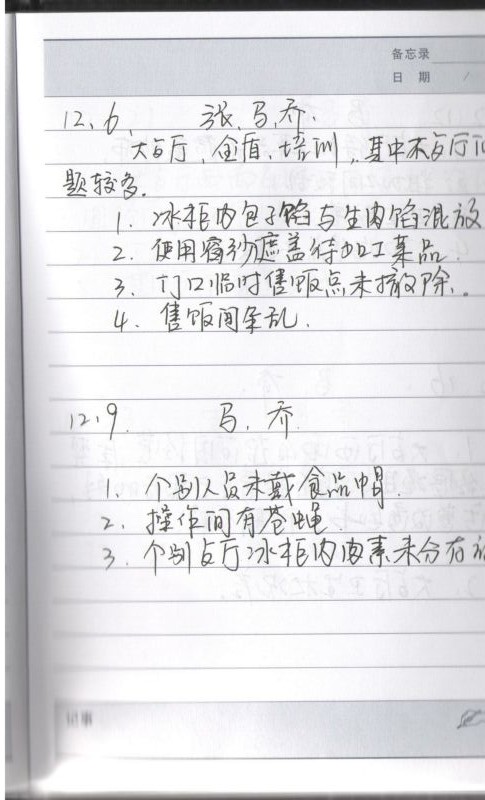 备忘录
日 期 /
12.6. 张,马,乔.
大㕑厅,金盾、培训,其中大㕑厅问
题较多.
1. 冰柜内包子馅与生肉馅混放
2. 使用窗纱遮盖待加工菜品.
3. 门口临时售饭点未撤除.
4. 售饭间杂乱.
12.9. 马. 乔.
1. 个别人员未戴食品帽.
2. 操作间有苍蝇
3. 个别㕑厅冰柜内肉素未分存放